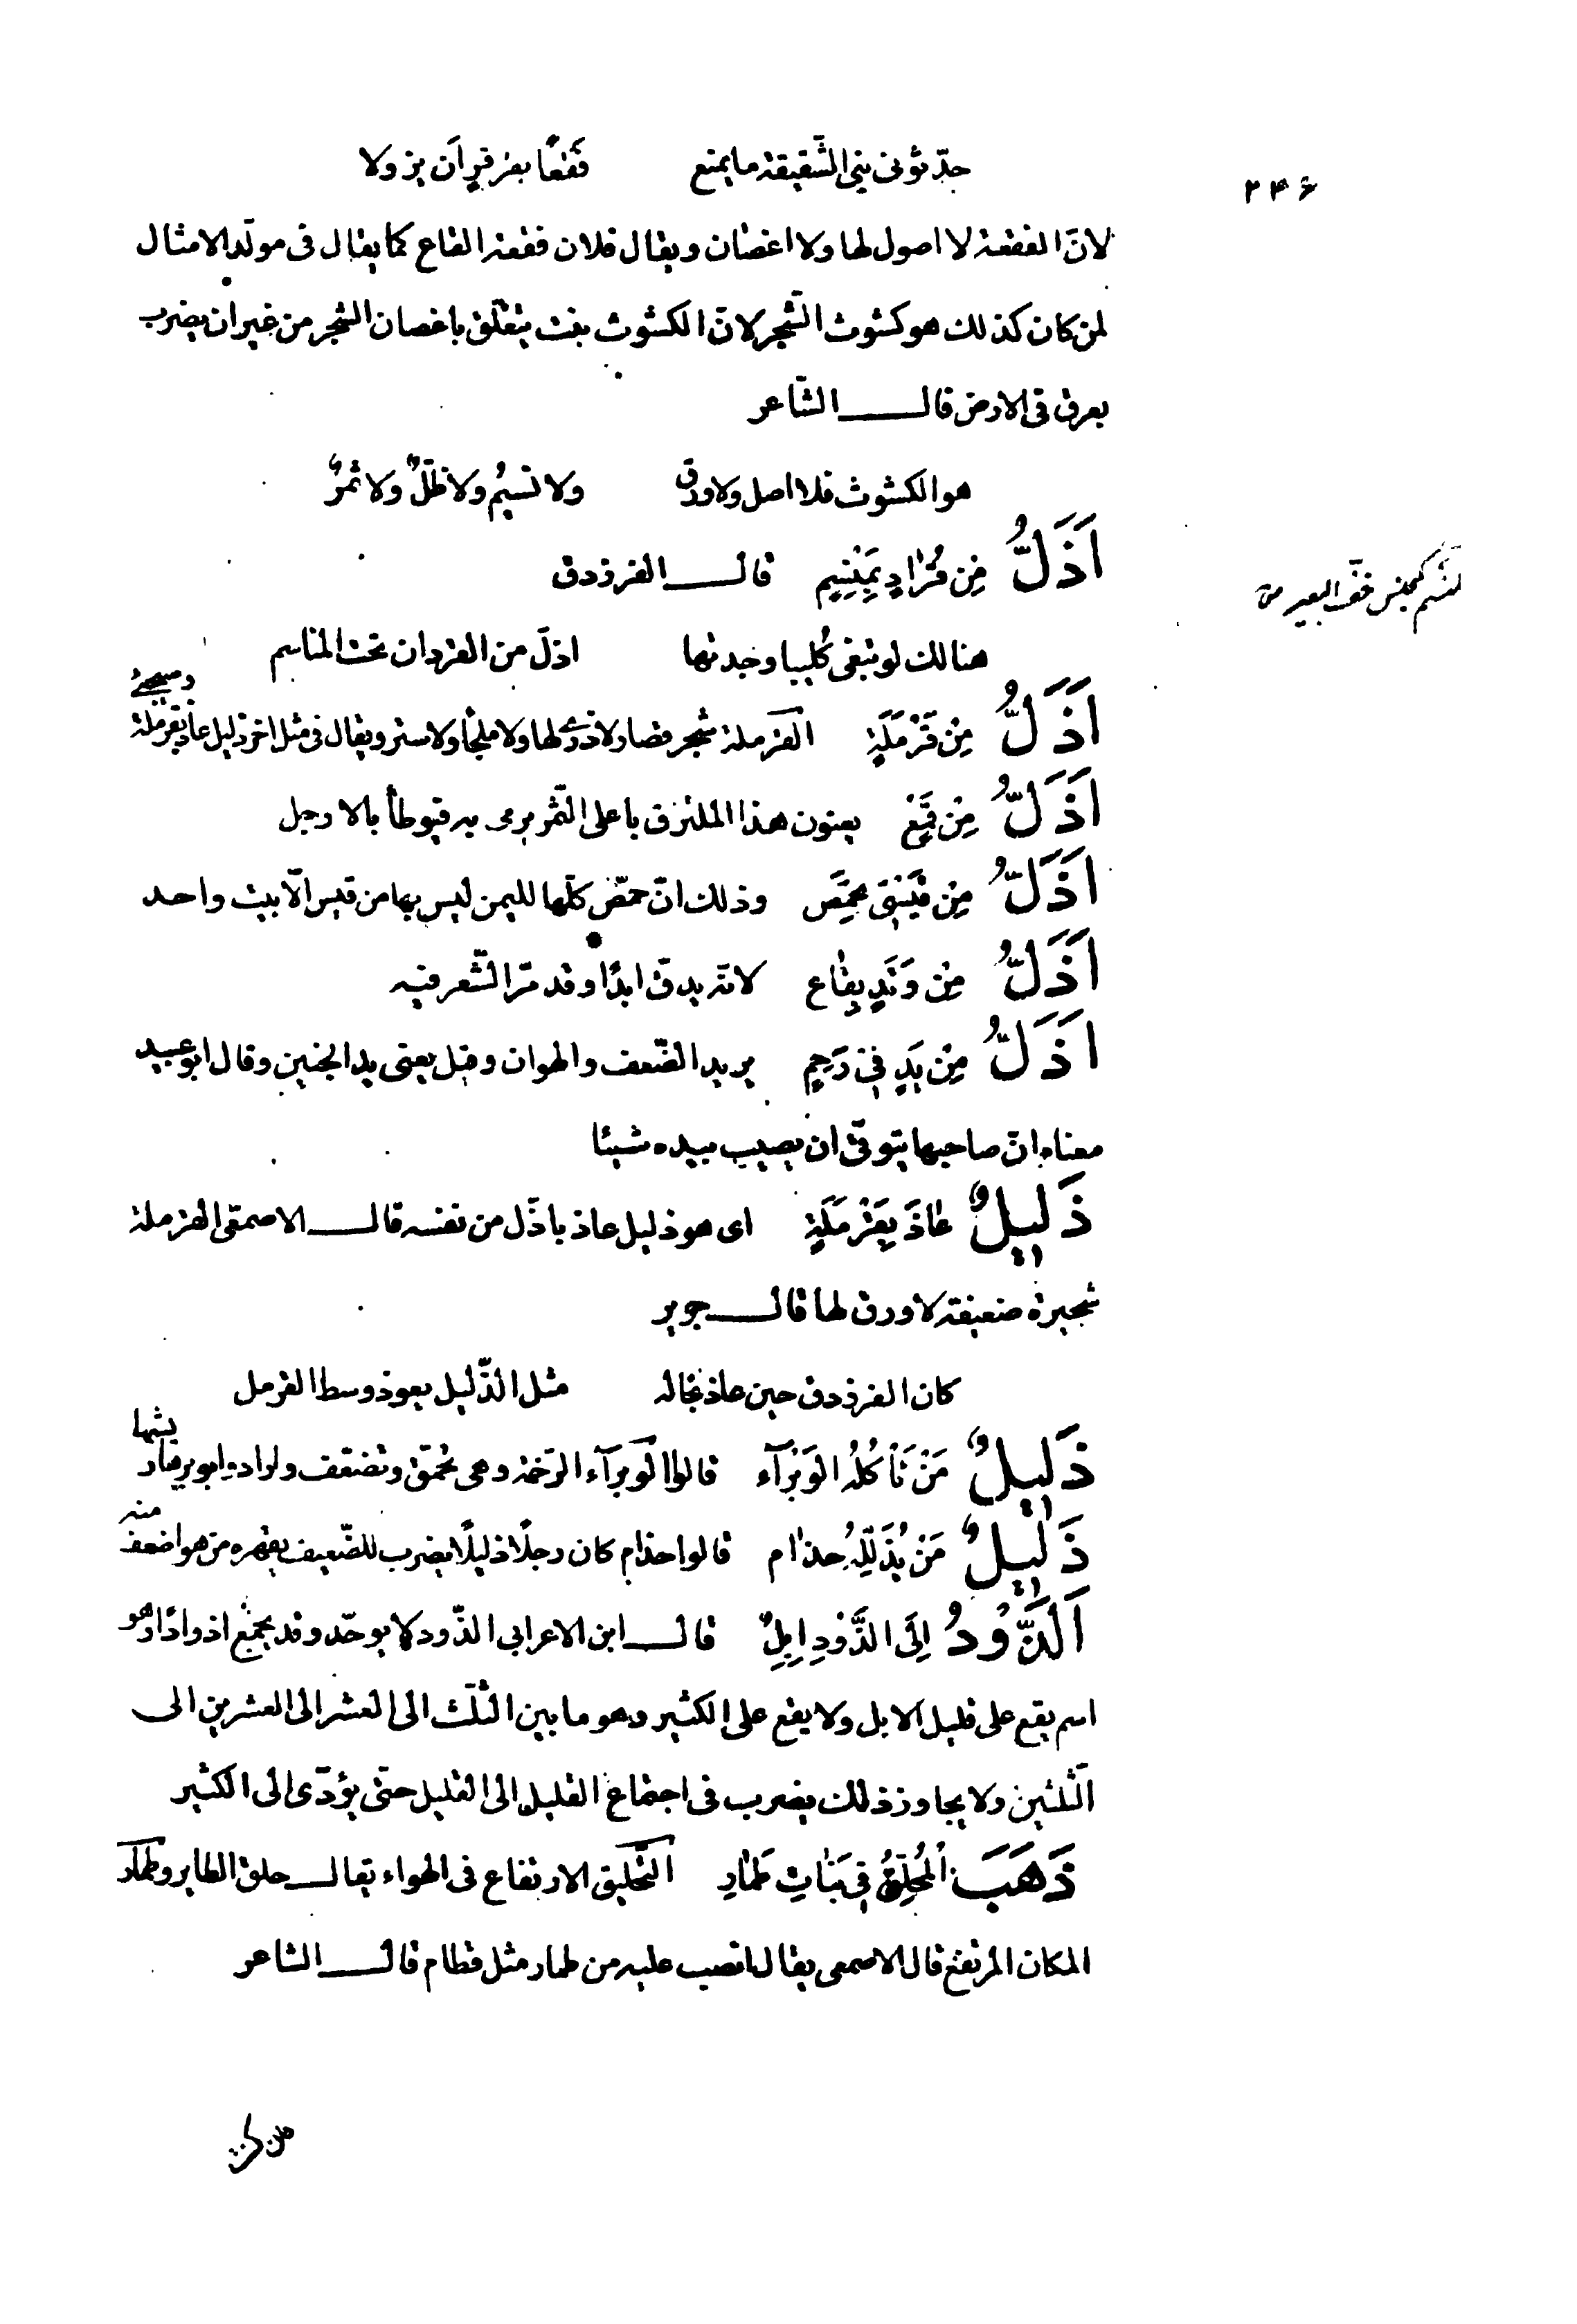 ٢٤۶
حدّثونى بنى الشّقيقة ما يمنع فقعًا بقرقرٍ اَن يزولا
لانّ الفقعة لا اصول لها ولا اغصان ويقال فلان فقعة القاع كما يقال فى مولّد الامثال
لمن كان كذلك هو كشوث الشّجر لانّ الكشوث نبت يتعلّق باغصان الشّجر من غير ان يضرب
بعرق فى الارض قال الشّاعر
هو الكشوث فلا اصل ولا ورق ولا نسيمٌ ولا ظلٌّ ولا ثمرٌ
اَذَلُّ مِن قُرٰادٍ بِمَنْسِمٍ قال الفرزدق
المنسم كمجلس خفّ البعير من
هنالك لو تبغى كُليبا وجدتها اذلّ من القردان تحت المناسم
اَذَلُّ مِن قَرْمَلَةٍ القرملة شجر قصار لا ذرى لها ولا ملجأ ولا ستر ويقال فى مثل اخر ذليل عاذ بقرملة وسيجئ
اَذَلُّ مِنْ قِمَعْ يعنون هذا الملتزق باعلى التّمر يرمى به فيوطأ بالارجل
اَذَلُّ مِنْ قَيْسِىّ بحِمْصَ وذلك انّ حمص كلّها لليمن ليس بها من قيس الّا بيت واحد
اَذَلُّ مِنْ وَتَدٍ بِقٰاع لانّه يدقّ ابدًا وقد مرّ الشّعر فيه
اَذَلُّ مِنْ يَدٍ فِى رَحِمٍ يريد الضّعف والهوان وقيل يعنى يد الجنين وقال ابو عبيد
معناه انّ صاحبها يتوقّى ان يصيب بيده شيئا
ذَليلٌ عٰاذَ بِقَرْمَلَةٍ اى هو ذليل عاذ باذّل من نفسه قال الاصمعى القرملة
شجيرة ضعيفة لا ورق لها قال جرير
كان الفرزدق حين عاذ بخاله مثل الذّليل يعوذ وسط القرمل
ذَليلٌ مَنْ تَأكُلُهُ الوَبْرٰآء قالوا الوبرآء الرّخمة وهى تحمّق وتضعّف ولواد بوبرها ريشها
ذَليلٌ مَنْ يُذَلِّلُهُ حذٰام قالوا حذام كان رجلًا ذليلًا يضرب للضّعيف يقهره من هو اضعف منه
اَلذَّوْدُ اِلَى الذَّوْدِ اِبِلٌ قال ابن الاعرابى الذّود لا يوحّد وقد يجمع اذوادًا وهو
اسم يقع على قليل الابل ولا يقع على الكثير وهو ما بين الثّلث الى العشر الى العشرين الى
الثّلثين ولا يجاوز ذلك يضرب فى اجتماع القليل الى القليل حتّى يؤدّى الى الكثير
ذَهَبَ المُحَلِّقُ فى بَنٰاتِ طَمٰارِ التّحليق الارتفاع فى الهواء يقال حلق الطاير وطمار
المكان المرتفع قال الاصمعى يقال انصب عليه من طمار مثل قطام قال الشاعر